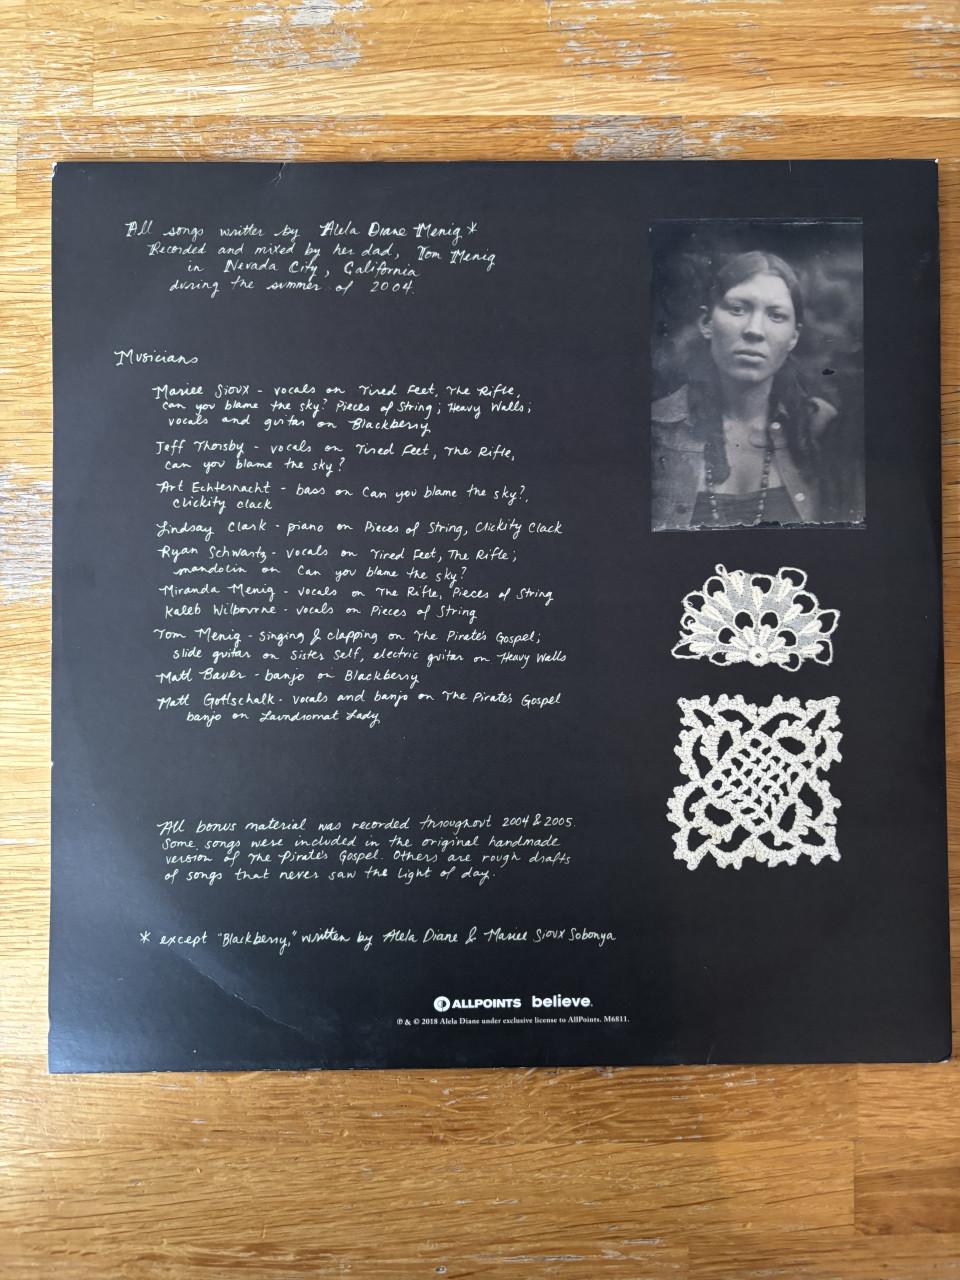 All songs written by Alela Diane Menig*
Recorded and mixed by her dad, Tom Menig
in Nevada City, California
during the summer of 2004.
Musicians
Mariee Sioux - vocals on Tired Feet, The Rifle,
can you blame the sky? Pieces of String; Heavy Walls;
vocals and guitar on Blackberry
Jeff Thorsby - vocals on Tired Feet, The Rifle,
can you blame the sky?
Art Echternacht - bass on Can you blame the sky?,
clickity clack
Lindsay Clark - piano on Pieces of String, Clickity Clack
Ryan Schwartz - vocals on Tired Feet, The Rifle;
mandolin on Can you blame the sky?
Miranda Menig - vocals on The Rifle, Pieces of String
Kaleb Wilbourne - vocals on Pieces of String
Tom Menig - singing & clapping on The Pirate's Gospel;
slide guitar on Sister Self, electric guitar on Heavy Walls
Matt Bauer - banjo on Blackberry
Matt Gottschalk - vocals and banjo on The Pirate's Gospel
banjo on Laundromat Lady
All bonus material was recorded throughout 2004 & 2005.
Some songs were included in the original handmade
version of The Pirate's Gospel. Others are rough drafts
of songs that never saw the light of day.
* except "Blackberry," written by Alela Diane & Mariee Sioux Sobonya
ALLPOINTS believe.
℗ & © 2018 Alela Diane under exclusive license to AllPoints. M6811.